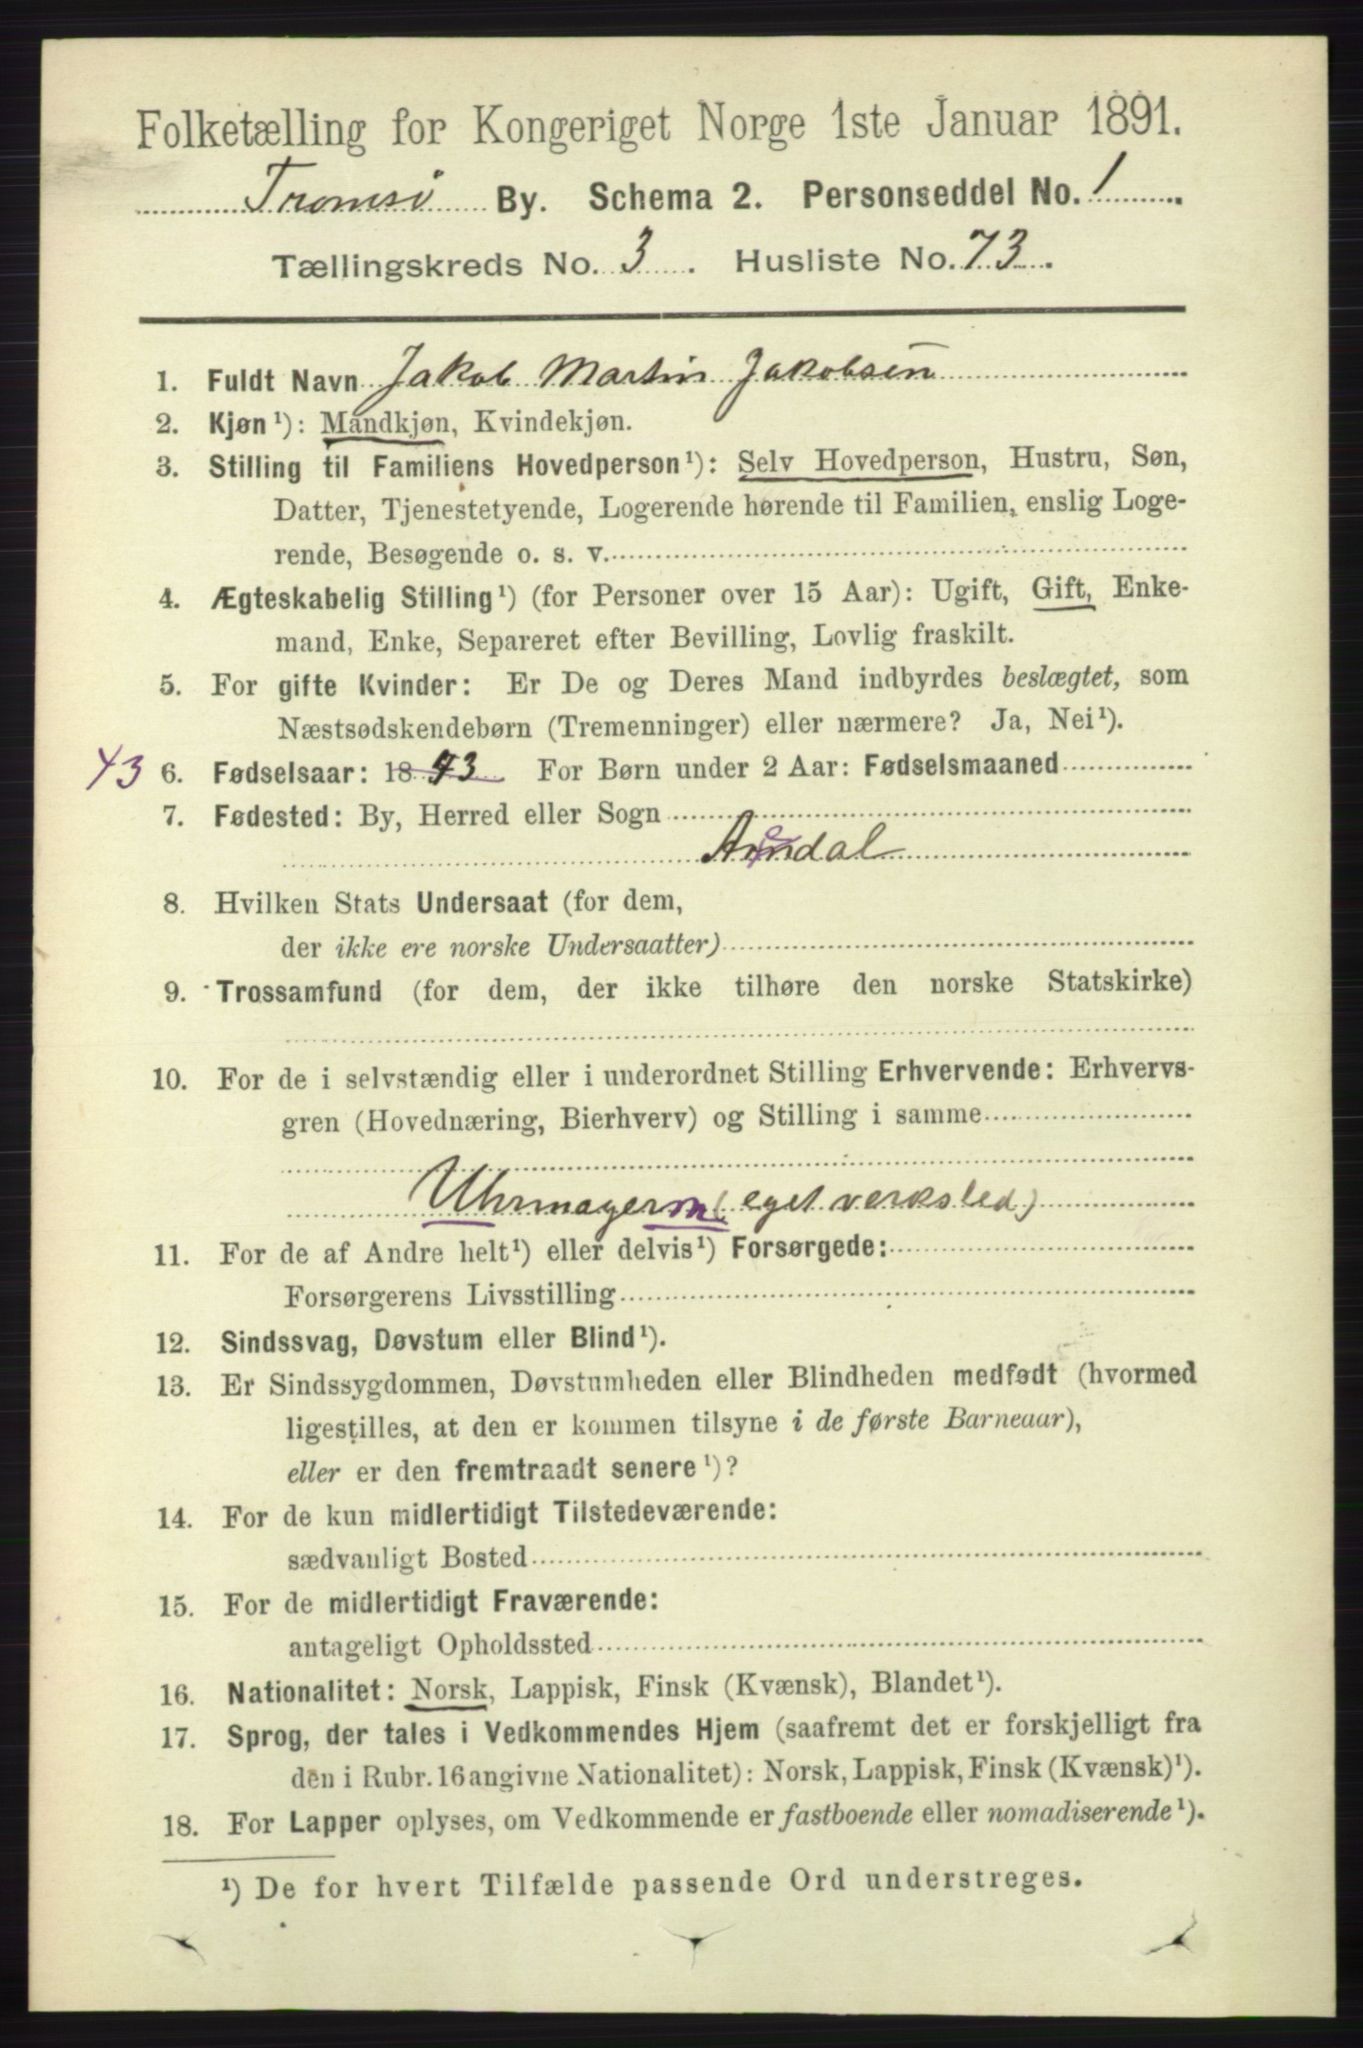 Folketælling for Kongeriget Norge 1ste Januar 1891.
Tromsø By. Schema 2. Personseddel No. 1
Tællingskreds No. 3. Husliste No. 73.
1. Fuldt Navn Jakob Martin Jakobsen
2. Kjøn¹): Mandkjøn, Kvindekjøn.
3. Stilling til Familiens Hovedperson¹): Selv Hovedperson, Hustru, Søn,
Datter, Tjenestetyende, Logerende hørende til Familien, enslig Loge-
rende, Besøgende o. s. v.
4. Ægteskabelig Stilling¹) (for Personer over 15 Aar): Ugift, Gift, Enke-
mand, Enke, Separeret efter Bevilling, Lovlig fraskilt.
5. For gifte Kvinder: Er De og Deres Mand indbyrdes beslægtet, som
Næstsødskendebørn (Tremenninger) eller nærmere? Ja, Nei¹).
43 6. Fødselsaar: 1843 For Børn under 2 Aar: Fødselsmaaned
7. Fødested: By, Herred eller Sogn
8. Hvilken Stats Undersaat (for dem,
der ikke ere norske Undersaatter)
9. Trossamfund (for dem, der ikke tilhøre den norske Statskirke)
10. For de i selvstændig eller i underordnet Stilling Erhvervende: Erhvervs-
gren (Hovednæring, Bierhverv) og Stilling i samme
Uhrmager m (eget verksted)
11. For de af Andre helt¹) eller delvis¹) Forsørgede:
Forsørgerens Livsstilling
12. Sindssvag, Døvstum eller Blind¹).
13. Er Sindssygdommen, Døvstumheden eller Blindheden medfødt (hvormed
ligestilles, at den er kommen tilsyne i de første Barneaar),
eller er den fremtraadt senere¹)?
14. For de kun midlertidigt Tilstedeværende:
sædvanligt Bosted
15. For de midlertidigt Fraværende:
antageligt Opholdssted
16. Nationalitet: Norsk, Lappisk, Finsk (Kvænsk), Blandet¹).
17. Sprog, der tales i Vedkommendes Hjem (saafremt det er forskjelligt fra
den i Rubr. 16 angivne Nationalitet): Norsk, Lappisk, Finsk (Kvænsk)¹).
18. For Lapper oplyses, om Vedkommende er fastboende eller nomadiserende¹).
¹) De for hvert Tilfælde passende Ord understreges.